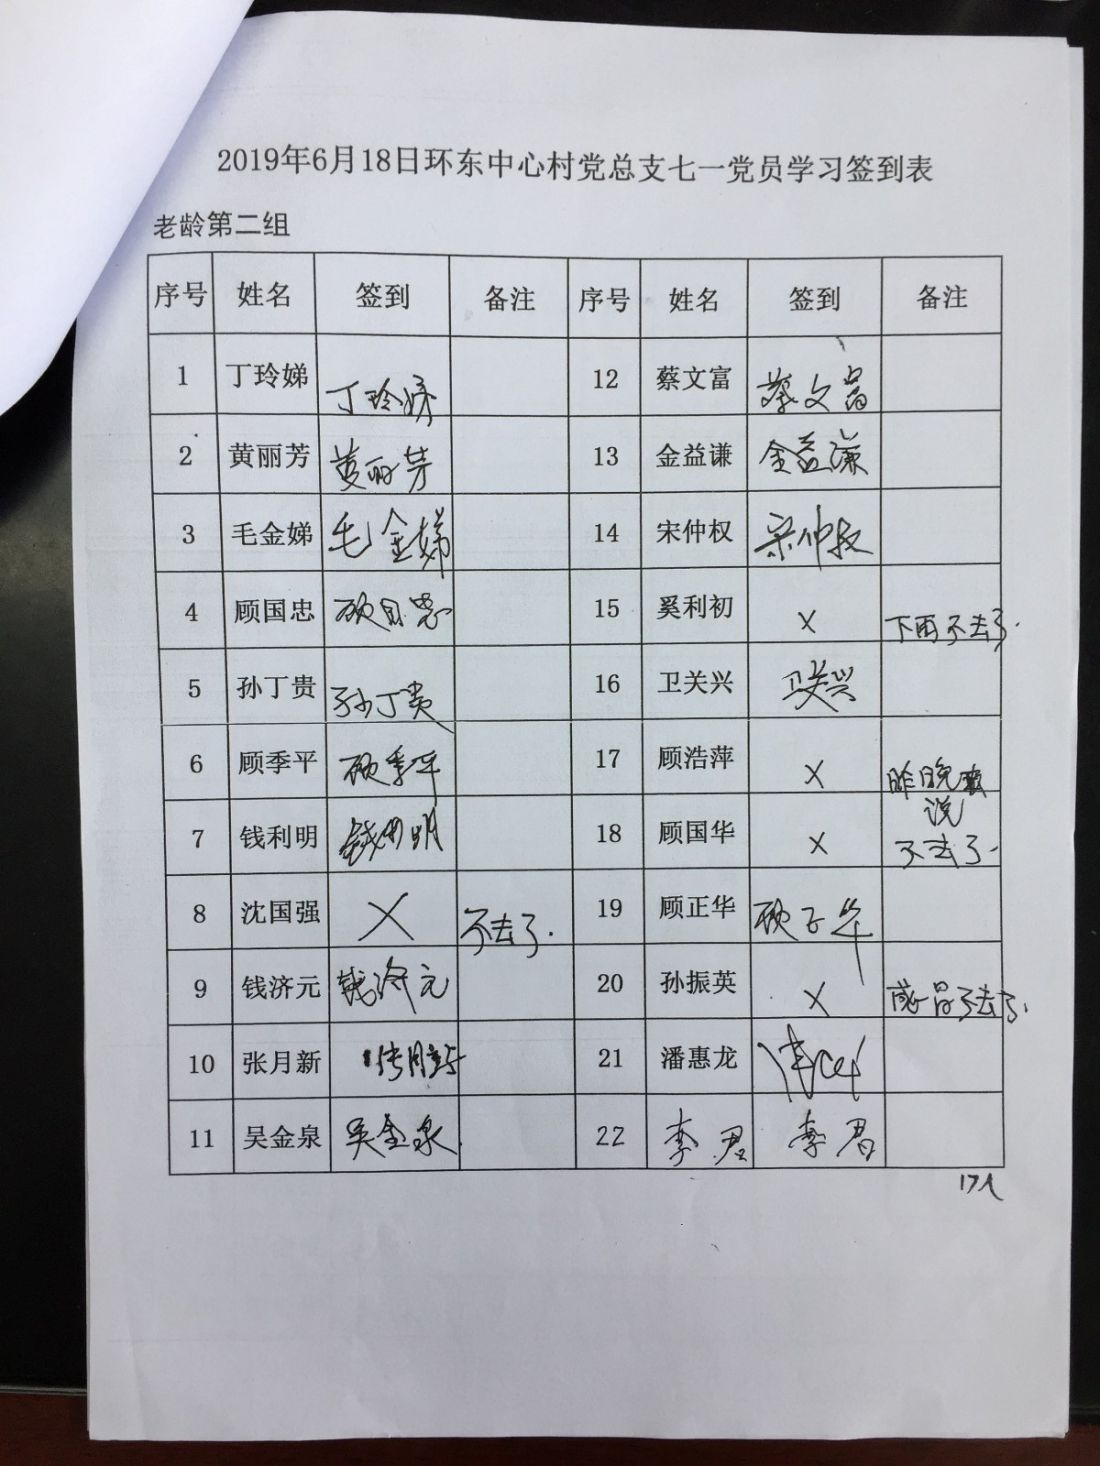 2019年6月18日环东中心村党总支七一党员学习签到表
老龄第二组
序号 姓名 签到 备注 序号 姓名 签到 备注
1 丁玲娣 丁玲娣 12 蔡文富 蔡文富
2 黄丽芳 黄丽芳 13 金益谦 金益谦
3 毛金娣 毛金娣 14 宋仲权 宋仲权
4 顾国忠 顾国忠 15 奚利初 X 下雨不去了.
5 孙丁贵 孙丁贵 16 卫关兴 卫关兴
6 顾季平 顾季平 17 顾浩萍 X 昨晚
说
7 钱利明 钱利明 18 顾国华 X 不去了.
8 沈国强 X 不去了. 19 顾正华 顾正华
9 钱济元 钱济元 20 孙振英 X 感冒不去了.
10 张月新 张月新 21 潘惠龙
11 吴金泉 吴金泉 22 李君 李君
17人